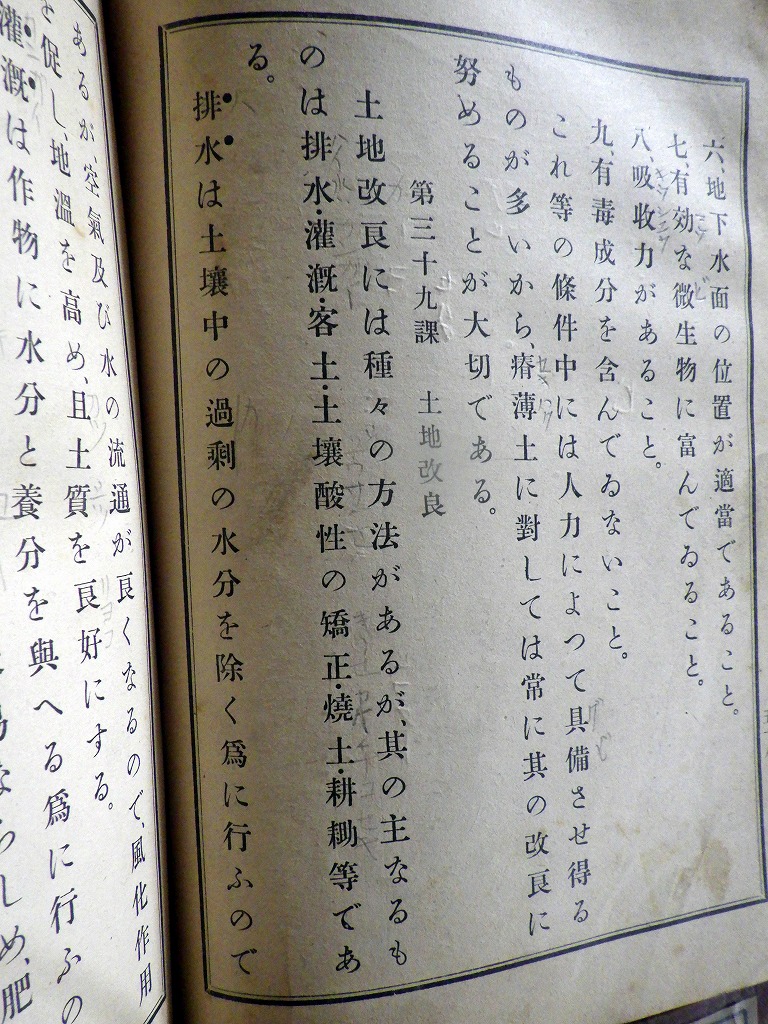 六、地下水面の位置が適當であること。
七、有効な微生物に富んでゐること。
八、吸收力があること。
九、有毒成分を含んでゐないこと。
これ等の條件中には人力によつて具備させ得る
ものが多いから、瘠薄土に對しては常に其の改良に
努めることが大切である。
第三十九課　土地改良
土地改良には種々の方法があるが、其の主なるも
のは排水・灌漑・客土・土壤酸性の矯正・燒土・耕鋤等であ
る。
排水は土壤中の過剩の水分を除く爲に行ふので
あるが、空氣及び水の流通が良くなるので、風化作用
を促し、地溫を高め、且土質を良好にする。
灌漑は作物に水分と養分を與へる爲に行ふの
しめ、肥